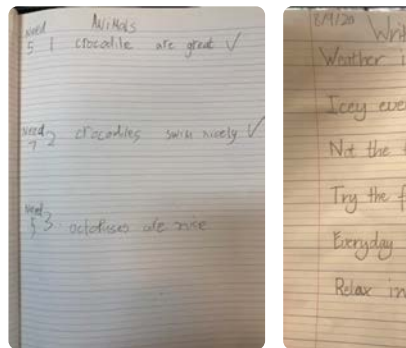 ANiMALS
need
5 1 crocodile are great ✓
need
7 2 crocodiles swim nicely ✓
need
5 3 octopuses are nice
8/9/20
Weather
Icey
Not the
Try the
Everyday
Relax